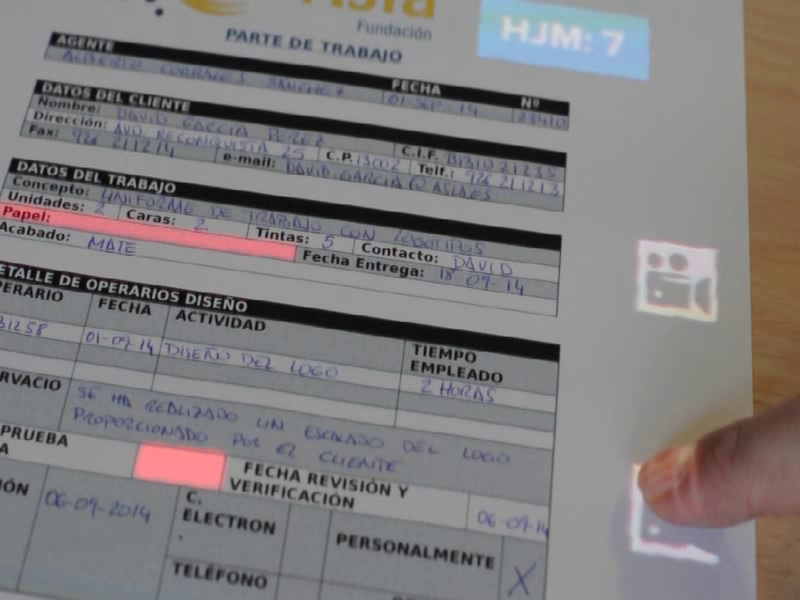 Asla
Fundación
HJM: 7
PARTE DE TRABAJO
AGENTE FECHA Nº
ALBERTO CORRALES SANCHEZ 01-SEP-14 23410
DATOS DEL CLIENTE
Nombre: DAVID GARCIA PEREZ C.I.F. B131021235
Dirección: AVD. RECONQUISTA 25 C.P. 13002 Telf.: 926 211213
Fax: 926 211214 e-mail: DAVID.GARCIA@ASLAES
DATOS DEL TRABAJO
Concepto: UNIFORME DE TRABAJO CON LOGOTIPOS
Unidades: 2 Caras: 2 Tintas: 5 Contacto: DAVID
Papel:
Acabado: MATE Fecha Entrega: 18-09-14
ETALLE DE OPERARIOS DISEÑO
ERARIO FECHA ACTIVIDAD TIEMPO EMPLEADO
31258 01-09-14 DISEÑO DEL LOGO 2 HORAS
RVACIO SE HA REALIZADO UN ESCALADO DEL LOGO
PROPORCIONADO POR EL CLIENTE
PRUEBA FECHA REVISIÓN Y
A VERIFICACIÓN 06-09-14
ÓN 06-09-2014 C. ELECTRON. PERSONALMENTE X
TELÉFONO